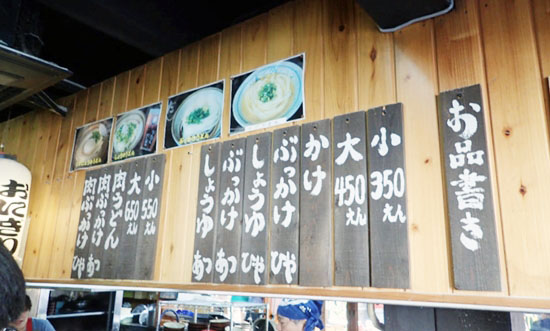 お品書き
小 350えん
大 450えん
かけ
ぶっかけ ひや
しょうゆ ひや
ぶっかけ あつ
しょうゆ あつ
小 550えん
大 650えん
肉うどん
肉ぶっかけ あつ
肉ぶっかけ ひや
おにぎり